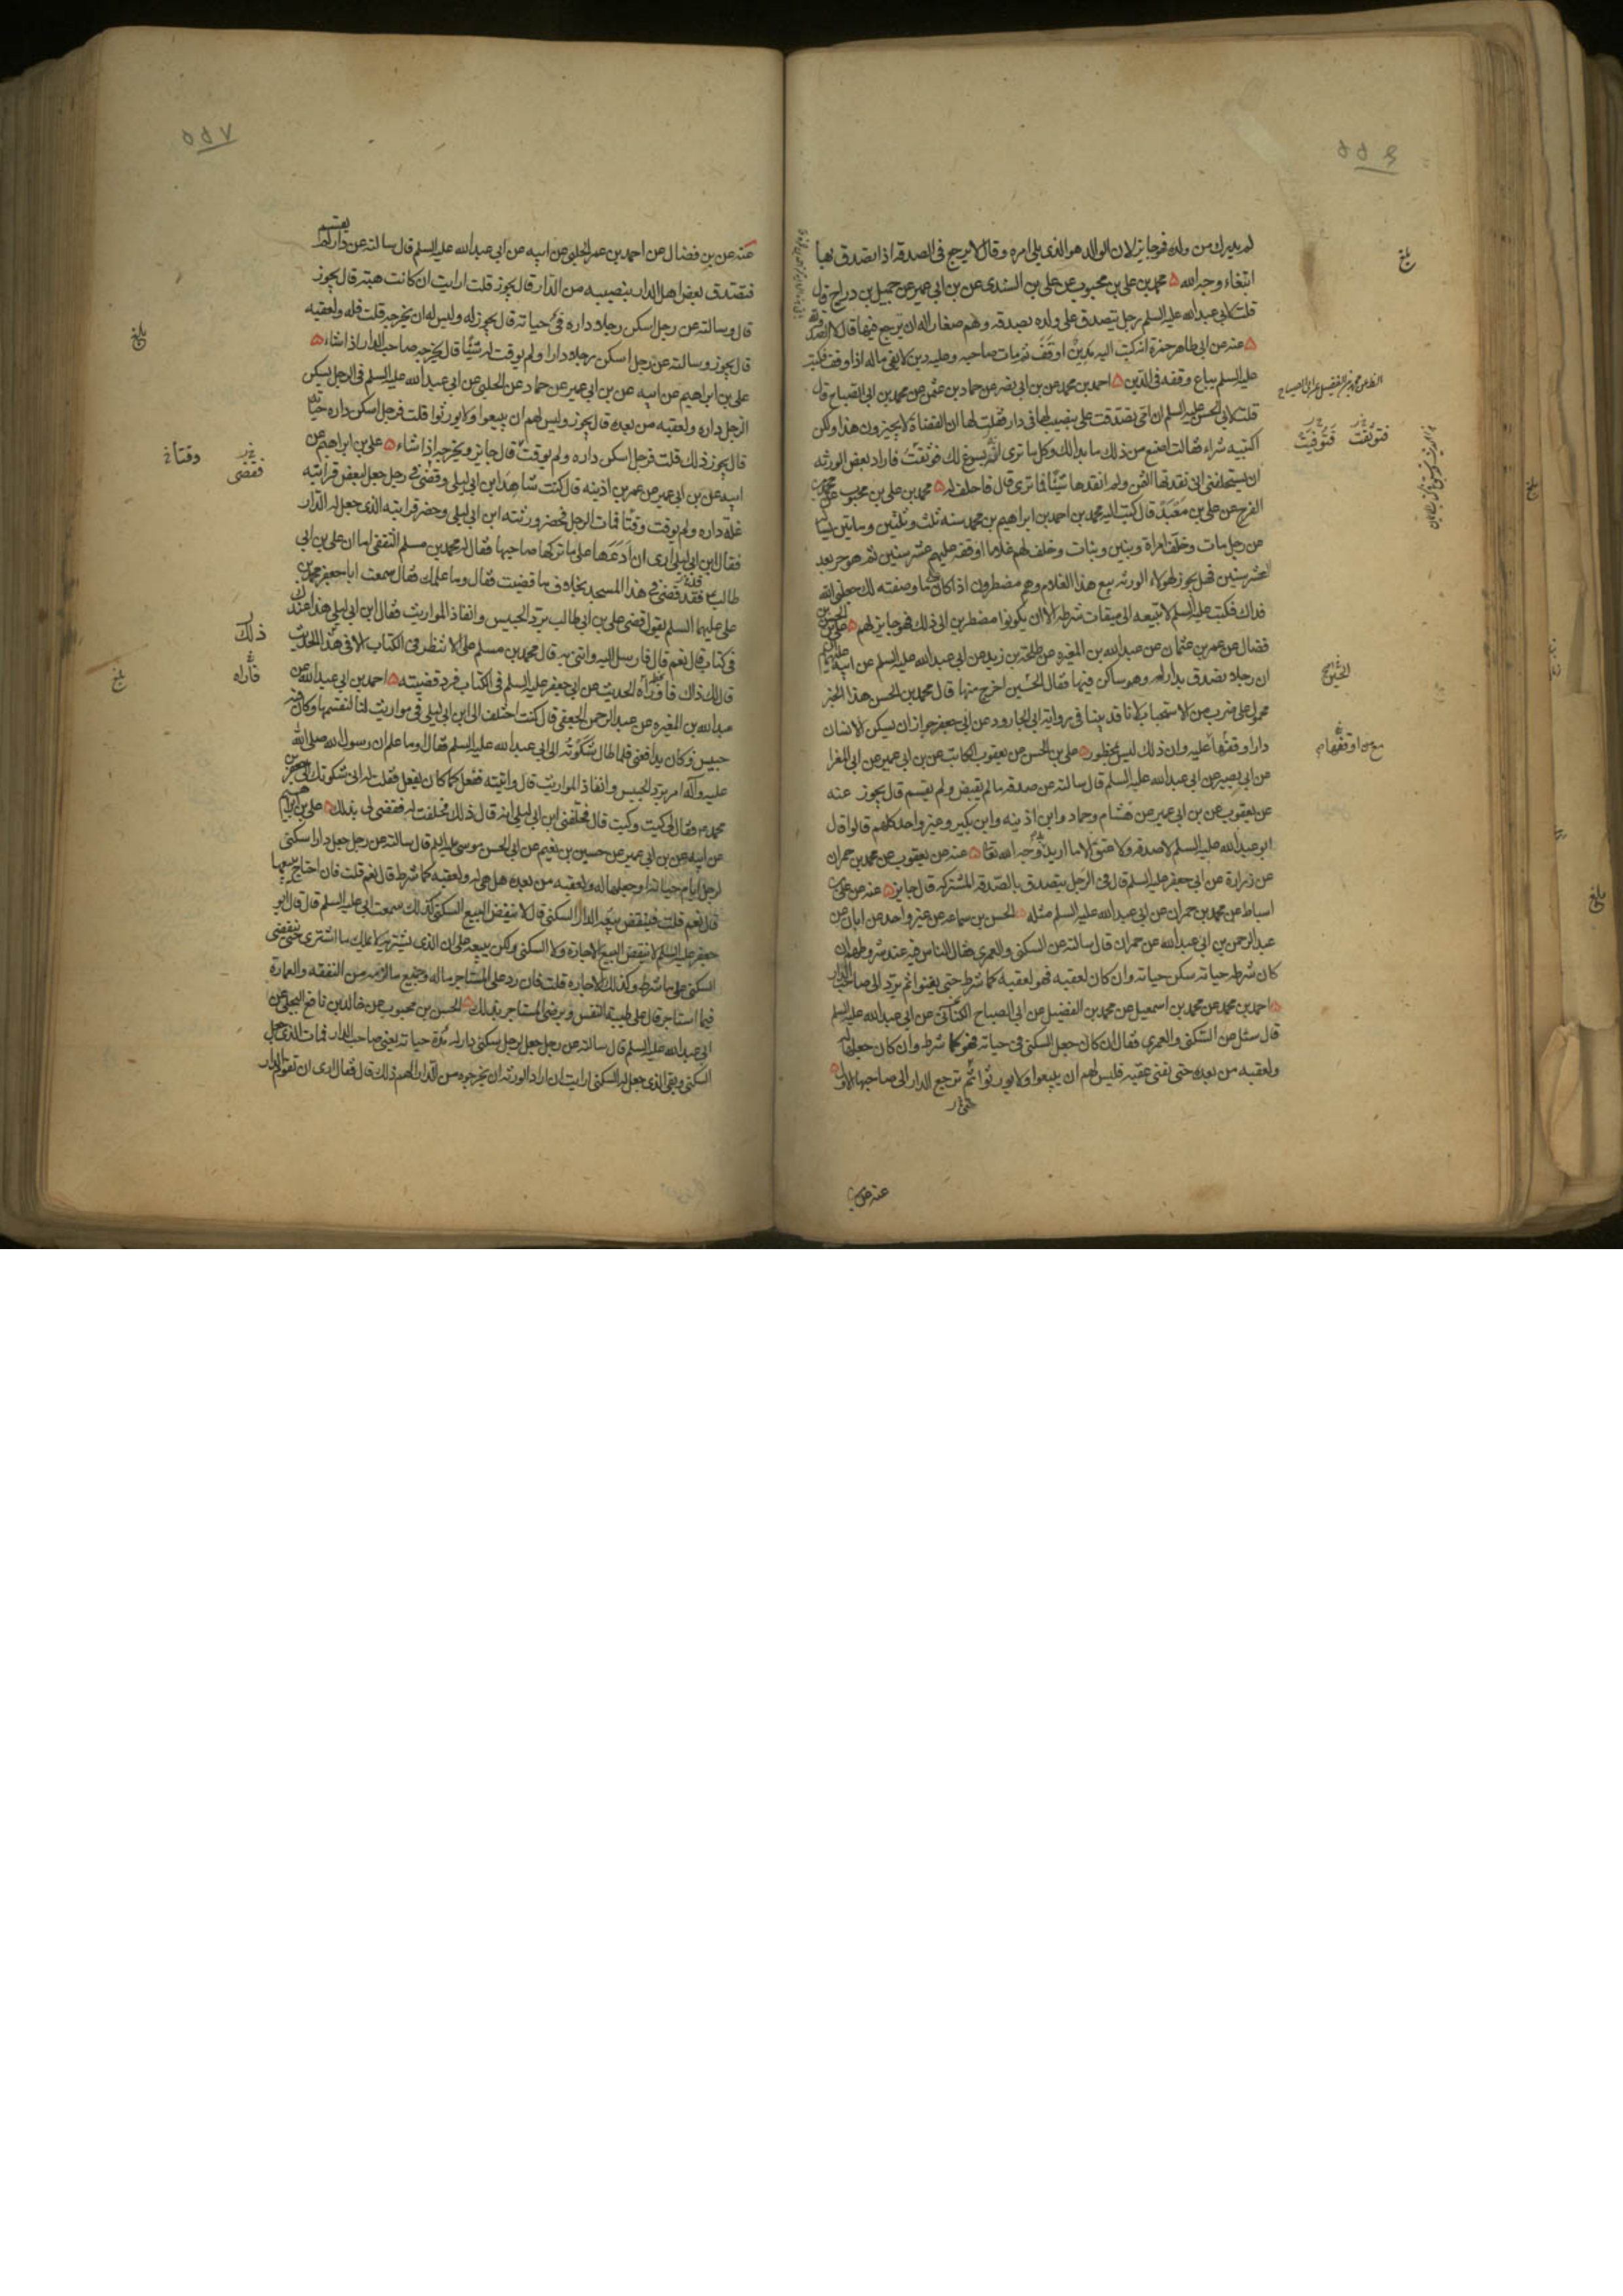 ٥٥٦
لم يدرك من ولده فهو جايز لان الوالد هو الذي يلي امره وقال لا يرجع في الصدقة اذا تصدق بها
ابتغاء وجه الله ٥ محمد بن علي بن محبوب عن علي بن السندي عن بن ابي عمير عن جميل بن دراج قال
قلت لابي عبد الله عليه السلم رجل يتصدق على ولده بصدقه وهم صغار اله ان يرجع فيها قال لا الصدقة لله
٥ عنه عن ابي طاهر حمزة انه كتب اليه مدين اوقف ثم مات صاحبه وعليه دين لا يفي ماله اذا وقف فكتب
عليه السلم يباع وقفه في الدين ٥ احمد بن محمد عن بن ابي نصر عن حماد بن عثمن عن محمد بن ابي الصباح قال
قلت لابي الحسن عليه السلم ان امي تصدقت علي بنصيب لها في دار فقلت لها ان القضاة لا يجيزون هذا ولكن
اكتبيه شراء فقالت اصنع من ذلك ما بدا لك وكل ما ترى انه يسوغ لك فوثقت فاراد بعض الورثه
ان يستحلفني اني نقدتها الثمن ولم انقدها شيئا فما ترى قال فاحلف له ٥ محمد بن علي بن محبوب عن محمد بن
الفرج عن علي بن معبد قال كتب اليه محمد بن احمد بن ابراهيم بن محمد سنه ثلث وثلثين وماتين يساله
عن رجل مات وخلف امراة وبنين وبنات وخلف لهم غلاما اوقفه عليهم عشر سنين ثم هو حر بعد
العشر سنين فهل يجوز لهولاء الورثه بيع هذا الغلام وهم مضطرون اذا كان ما وصفته لك جعلني الله
فداك فكتب عليه السلم لا تبيعه الى ميقات شرطه الا ان يكونوا مضطرين الى ذلك فهو جايز لهم ٥ علي بن الحسن بن
فضال عن عمرو بن عثمان عن عبد الله بن المغيره عن طلحة بن زيد عن ابي عبد الله عليه السلم عن ابيه عليهما السلم
ان رجلا تصدق بدار له وهو ساكن فيها فقال الحسين اخرج منها قال محمد بن الحسن هذا الخبر
محمول على ضرب من الاستحباب لانا قد بينا في رواية ابي الجارود عن ابي جعفر جواز ان يسكن الانسان
دارا وقفها عليه وان ذلك ليس بمحظور ٥ علي بن الحسن عن يعقوب الكاتب عن بن ابي عمير عن ابي المغرا
عن ابي بصير عن ابي عبد الله عليه السلم قال سالته عن صدقه ما لم يقبض ولم يقسم قال يجوز عنه
عن يعقوب عن بن ابي عمير عن هشام وحماد وابن اذينه وابن بكير وغير واحد كلهم قالوا قال
ابو عبد الله عليه السلم لا صدقه ولا عتق الا ما اريد به وجه الله تعا ٥ عنه عن يعقوب عن محمد بن حمران
عن زرارة عن ابي جعفر عليه السلم قال في الرجل يتصدق بالصدقه المشتركه قال جايز ٥ عنه عن علي بن
اسباط عن محمد بن حمران عن ابي عبد الله عليه السلم مثله ٥ الحسن بن سماعه عن غير واحد عن ابان عن
عبد الرحمن بن ابي عبد الله عن حمران قال سالته عن السكنى والعمرى فقال الناس فيه عند شروطهم ان
كان شرطه حياته سكن حياته وان كان لعقبه فهو لعقبه كما شرط حتى يفنوا ثم يرد الى صاحب الدار
٥ احمد بن محمد عن محمد بن اسمعيل عن محمد بن الفضيل عن ابي الصباح الكناني عن ابي عبد الله عليه السلم
قال سئل عن السكنى والعمرى فقال ان كان جعل السكنى في حياته فهو كما شرط وان كان جعلها له
ولعقبه من بعده حتى يفنى عقبه فليس لهم ان يبيعوا ولا يورثوا ثم ترجع الدار الى صاحبها الاول ٥
بلغ
فتوثقت
الحسين
٥٥٧
عنه عن بن فضال عن احمد بن عمر الحلبي عن ابيه عن ابي عبد الله عليه السلم قال سالته عن دار لم يقسم
فتصدق بعض اهل الدار بنصيبه من الدار قال يجوز قلت ارايت ان كانت هبة قال يجوز
قال وسالته عن رجل اسكن رجلا داره في حياته قال يجوز له وليس له ان يخرجه قلت فله ولعقبه
قال يجوز وسالته عن رجل اسكن رجلا دارا ولم يوقت له شيئا قال يخرجه صاحب الدار اذا شاء ٥
علي بن ابراهيم عن ابيه عن بن ابي عمير عن حماد عن الحلبي عن ابي عبد الله عليه السلم في الرجل يسكن
الرجل داره ولعقبه من بعده قال يجوز وليس لهم ان يبيعوا ولا يورثوا قلت فرجل اسكن داره حياته
قال يجوز ذلك قلت فرجل اسكن داره ولم يوقت قال جايز ويخرجه اذا شاء ٥ علي بن ابراهيم عن
ابيه عن بن ابي عمير عن عمر بن اذينه قال كنت شاهدا بن ابي ليلى وقضى في رجل جعل لبعض قرابته
غلة داره ولم يوقت وقتا فمات الرجل فحضر ورثته ابن ابي ليلى وحضر قرابته الذي جعل له الدار
فقال ابن ابي ليلى ارى ان ادعها على ما تركها صاحبها فقال له محمد بن مسلم الثقفي اما ان علي بن ابي
طالب ع قد قضى في هذا المسجد بخلاف ما قضيت فقال وما علمك فقال سمعت ابا جعفر محمد بن
علي عليهما السلم يقول قضى علي بن ابي طالب برد الحبيس وانفاذ المواريث فقال ابن ابي ليلى هذا عندك
في كتاب قال نعم قال فارسل اليه وائتني به قال محمد بن مسلم على ان لا تنظر في الكتاب الا في هذا الحديث
قال لك ذاك فاقرأه الحديث عن ابي جعفر عليه السلم في الكتاب فرد قضيته ٥ احمد بن ابي عبد الله عن
عبد الله بن المغيره عن عبد الرحمن الجعفي قال كنت اختلف الى ابن ابي ليلى في مواريث لنا لنقسمها وكان فيه
حبيس وكان يدافعني فلما طال شكوته الى ابي عبد الله عليه السلم فقال او ما علم ان رسول الله صلى الله
عليه وآله امر برد الحبيس وانفاذ المواريث قال واتيته ففعل كما كان يفعل فقلت له اني شكوتك الى جعفر بن
محمد ع فقال لي كيت وكيت قال فحلفني ابن ابي ليلى انه قال ذلك فحلفت له فقضى لي بذلك ٥ علي بن ابراهيم
عن ابيه عن بن ابي عمير عن حسين بن نعيم عن ابي الحسن موسى عليه السلم قال سالته عن رجل جعل دارا سكنى
لرجل ايام حياته او جعلها له ولعقبه من بعده هل هي له ولعقبه كما شرط قال نعم قلت فان احتاج يبيعها
قال نعم قلت فينقض بيعه الدار السكنى قال لا ينقض البيع السكنى كذلك سمعت ابي عليه السلم قال قال ابو
جعفر عليه السلم لا ينقض البيع الاجارة ولا السكنى ولكن يبيعه على ان الذي يشتريه لا يملك ما اشترى حتى ينقضي
السكنى على ما شرط وكذلك الاجاره قلت فان رد على المستاجر ماله وجميع ما لزمه من النفقه والعمارة
فيما استاجر قال على طيبة النفس ويرضى المستاجر بذلك ٥ الحسن بن محبوب عن خالد بن نافع البجلي عن
ابي عبد الله عليه السلم قال سالته عن رجل جعل لرجل سكنى دار له مدة حياته يعني صاحب الدار فمات الذي جعل
السكنى وبقي الذي جعل له السكنى ارايت ان اراد الورثه ان يخرجوه من الدار الهم ذلك قال فقال ارى ان تقوم الدار
بلغ
فقضى
ذلك
بلغ